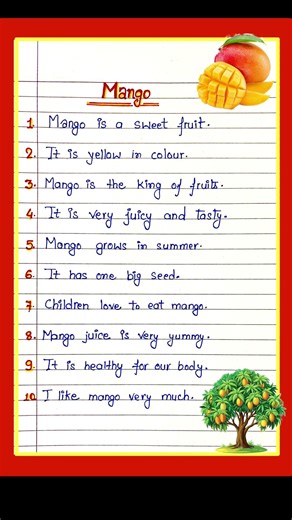 Mango
1. Mango is a sweet fruit.
2. It is yellow in colour.
3. Mango is the king of fruits.
4. It is very juicy and tasty.
5. Mango grows in summer.
6. It has one big seed.
7. Children love to eat mango.
8. Mango juice is very yummy.
9. It is healthy for our body.
10. I like mango very much.